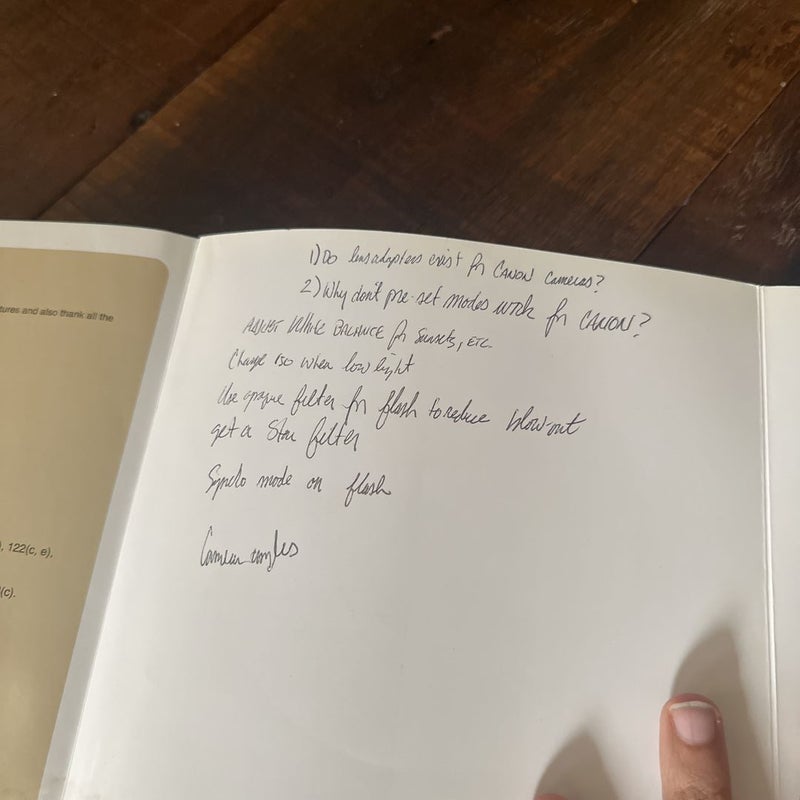 tures and also thank all the
, 122(c, e),
(c).
1) Do lens adapters exist for CANON cameras?
2) Why don't pre-set modes work for CANON?
ADJUST White BALANCE for Sunsets, ETC.
Change ISO when low light
Use opaque filter for flash to reduce blow-out
get a Star filter
Synchro mode on flash
Camera angles